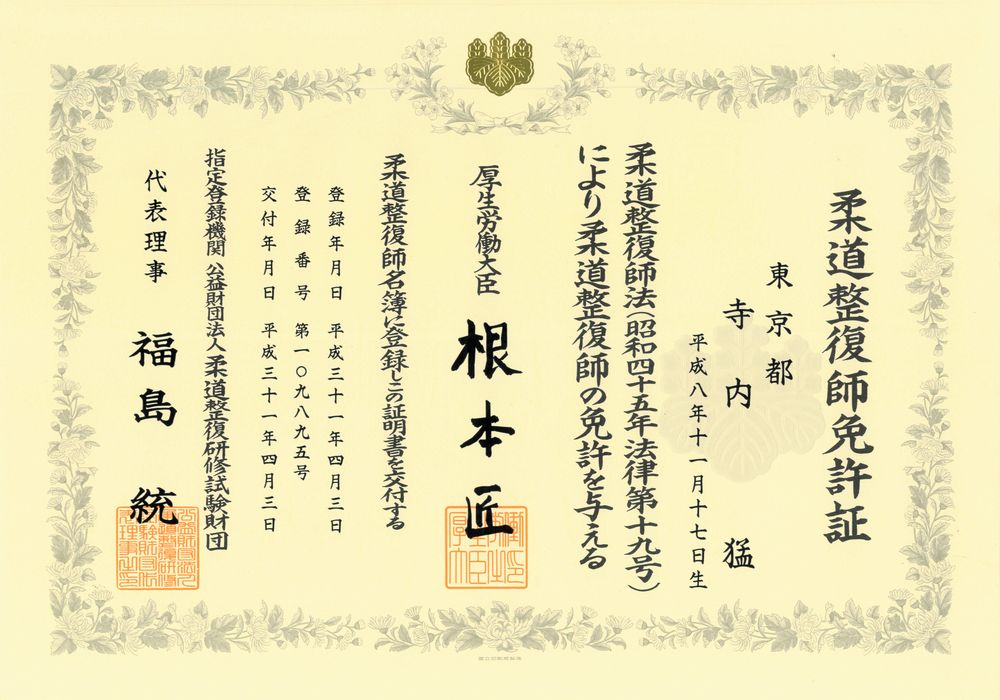 柔道整復師免許証
東京都
寺内 猛
平成八年十一月十七日生
柔道整復師法(昭和四十五年法律第十九号)
により柔道整復師の免許を与える
厚生労働大臣 根本匠
柔道整復師名簿に登録しこの証明書を交付する
登録年月日 平成三十一年四月三日
登録番号 第一〇九八九五号
交付年月日 平成三十一年四月三日
指定登録機関 公益財団法人 柔道整復研修試験財団
代表理事 福島 統